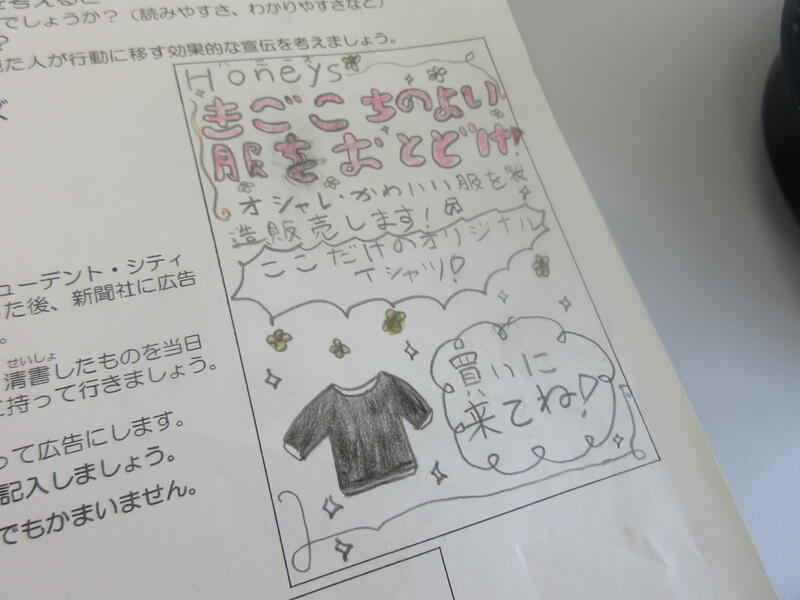 を考えると
でしょうか？（読みやすさ、わかりやすさなど）
？
見た人が行動に移す効果的な宣伝を考えましょう。
ズ
ューデント・シティ
った後、新聞社に広告
。
せいしょ
清書したものを当日
に持って行きましょう。
って広告にします。
記入しましょう。
でもかまいません。
Honeys
きごこちのよい
服をおとどけ
オシャレかわいい服を製
造販売します!
ここだけのオリジナル
Tシャツ!
買いに
来てね!